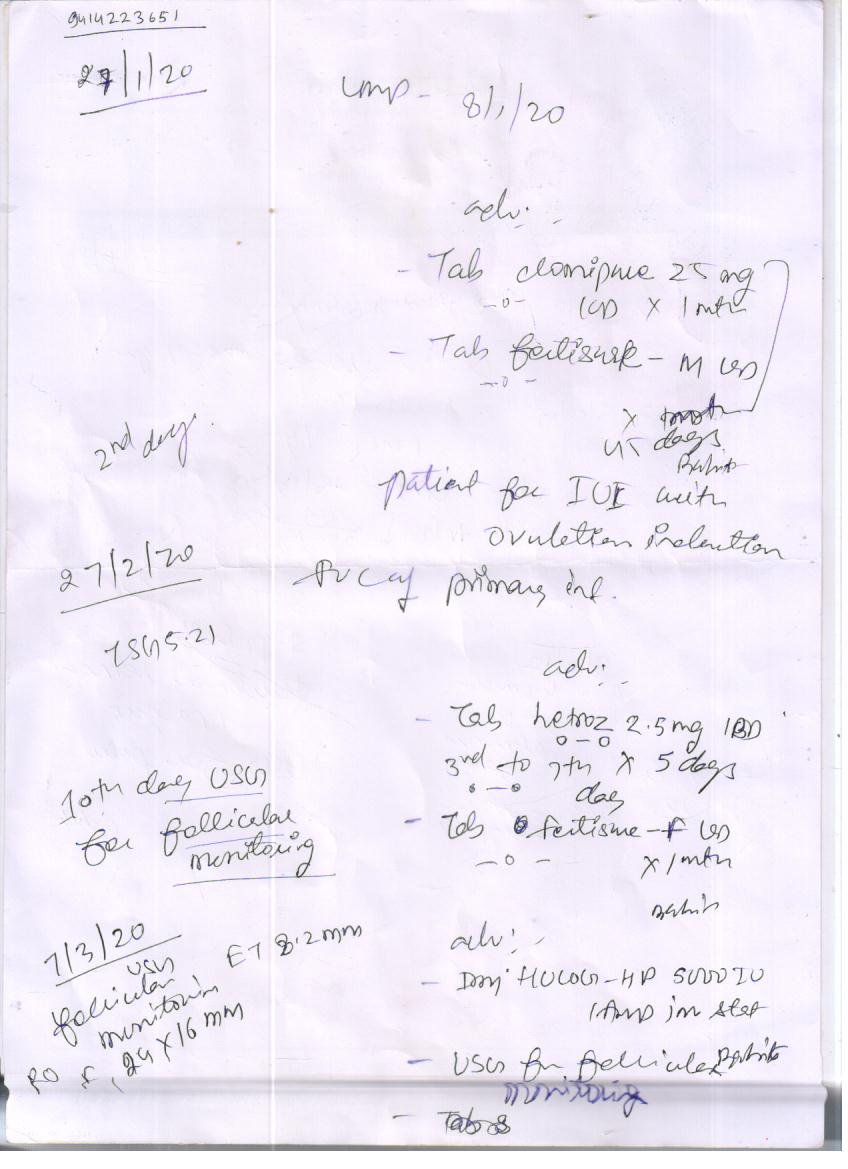 9414223651
27/1/20
LMP - 8/1/20
adv:
- Tab clomipure 25 mg
-o- 1OD X 1 mth
- Tab fertisure - M OD
-o-
X
45 days
2nd day
patient for IUI with
ovulation induction
27/2/20
primary inf.
TSH 5.21
adv:
- Tab Letroz 2.5mg 1BD
o-o
3rd to 7th X 5 days
day
10th day USG
for follicular
monitoring
- Tab fertisure - F OD
-o-
X 1 mth
7/3/20
USG
follicular
monitoring
ET 8.2mm
24 X 16 mm
adv:
- Inj HUCOG-HP 5000 IU
1 Amp im stat
- USG for follicular
monitoring
- Tab